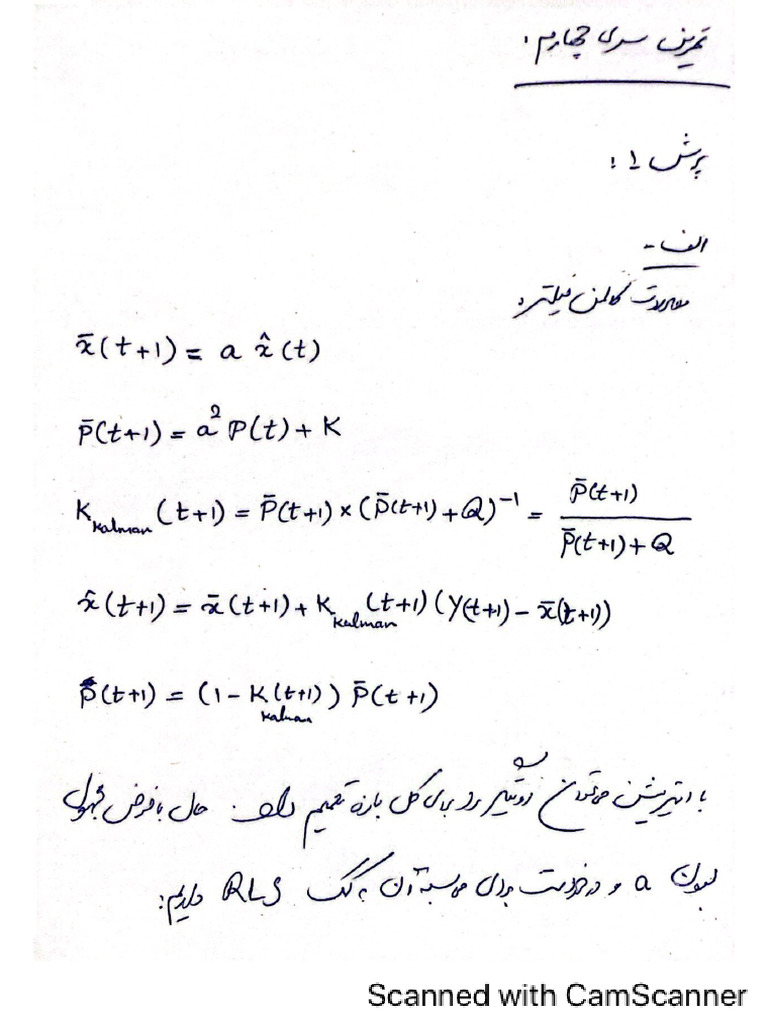 تمرین سری چهارم:
پرسش ۱:
الف -
معادلات کالمن فیلتر:
x̄(t+1) = a x̂(t)
P̄(t+1) = a² P(t) + K
K_kalman (t+1) = P̄(t+1) × (P̄(t+1) + Q)⁻¹ = P̄(t+1) / (P̄(t+1) + Q)
x̂(t+1) = x̄(t+1) + K_kalman (t+1) (Y(t+1) - x̄(t+1))
P̂(t+1) = (1 - K_kalman(t+1)) P̄(t+1)
با ایتریشن میتوان رو برای کل بازه تعمیم داد. حال با فرض مجهول
بودن a و درخواست برای محاسبه آن به کمک RLS داریم:
Scanned with CamScanner